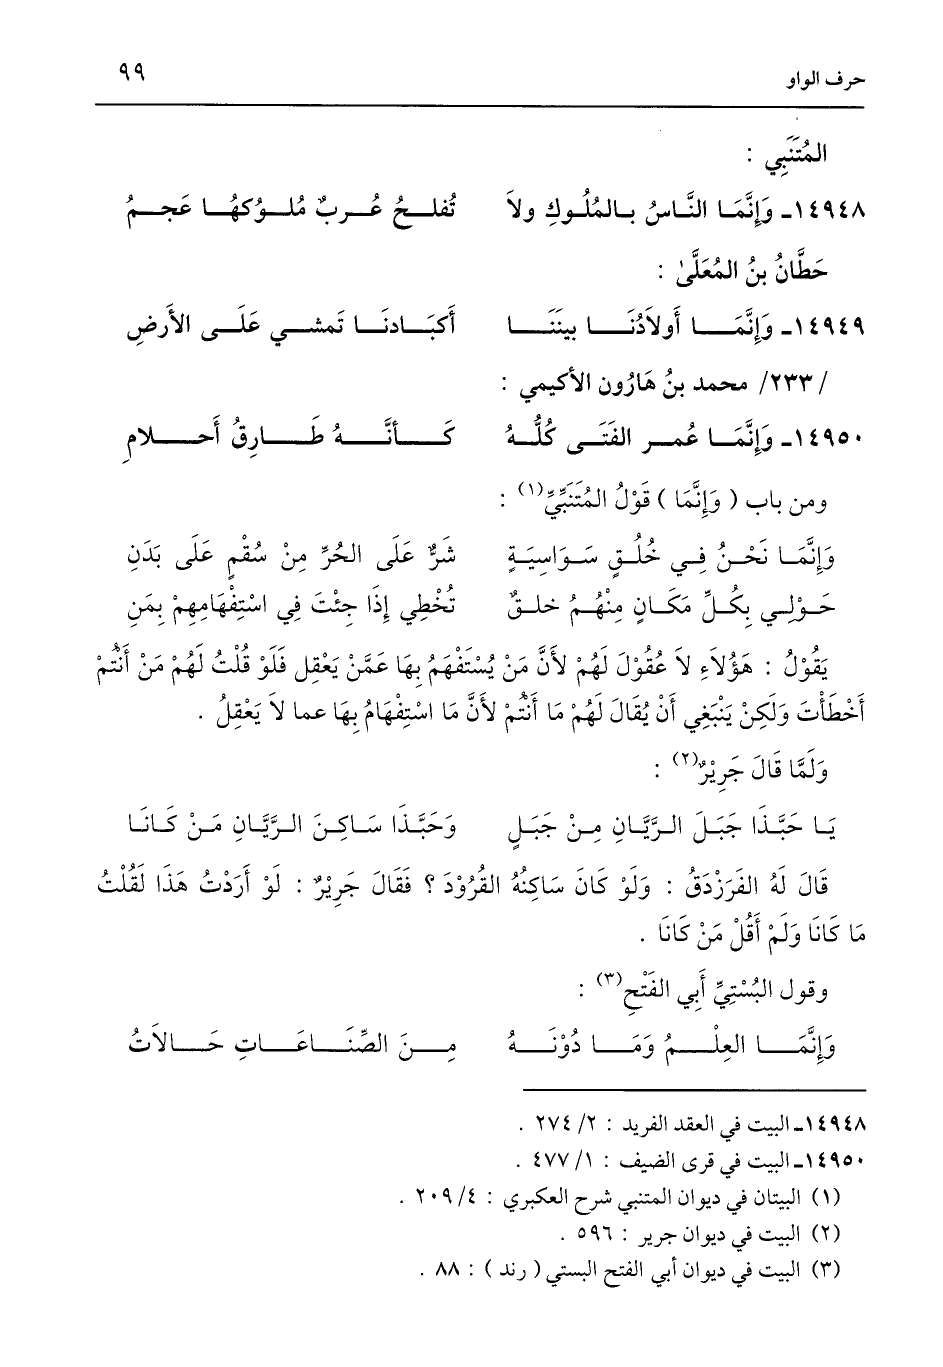 حرف الواو ٩٩
المُتَنَبِي :
١٤٩٤٨ـ وَإِنَّمَا النَّاسُ بالمُلُوكِ ولاَ تُفلحُ عُربٌ مُلوُكهُا عَجمُ
حَطَّانُ بنُ المُعَلَّىٰ :
١٤٩٤٩ـ وَإِنَّمَا أَولاَدُنَا بينَنَا أَكبَادنَا تَمشي عَلَى الأَرضِ
/ ٢٣٣/ محمد بنُ هَارُون الأكيمي :
١٤٩٥٠ـ وَإِنَّمَا عُمر الفَتَى كُلُّهُ كَأَنَّهُ طَارِقُ أَحلامِ
ومن باب ( وَإِنَّمَا ) قَوْلُ المُتَنَبِّيِّ(١) :
وَإِنَّمَا نَحْنُ فِي خُلُقٍ سَوَاسِيَةٍ شَرٌّ عَلَى الحُرِّ مِنْ سُقْمٍ عَلَى بَدَنِ
حَوْلِي بِكُلِّ مَكَانٍ مِنْهُمُ خلقٌ تُخْطِي إِذَا جِئْتَ فِي اسْتِفْهَامِهِمْ بِمَنِ
يَقُوْلُ : هَؤُلَاءِ لاَ عُقُوْلَ لَهُمْ لأَنَّ مَنْ يُسْتَفْهَمُ بِهَا عَمَّنْ يَعْقِل فَلَوْ قُلْتُ لَهُمْ مَنْ أَنْتُمْ
أَخْطَأْتَ وَلَكِنْ يَنْبَغِي أَنْ يُقَالَ لَهُمْ مَا أَنْتُمْ لأَنَّ مَا اسْتِفْهَامُ بِهَا عما لاَ يَعْقِلُ .
وَلَمَّا قَالَ جَرِيْرٌ(٢) :
يَا حَبَّذَا جَبَلَ الرَّيَّانِ مِنْ جَبَلٍ وَحَبَّذَا سَاكِنَ الرَّيَّانِ مَنْ كَانَا
قَالَ لَهُ الفَرَزْدَقُ : وَلَوْ كَانَ سَاكِنُهُ القُرُوْدَ ؟ فَقَالَ جَرِيْرٌ : لَوْ أَرَدْتُ هَذَا لَقُلْتُ
مَا كَانَا وَلَمْ أَقُلْ مَنْ كَانَا .
وقول البُسْتِيِّ أَبِي الفَتْحِ(٣) :
وَإِنَّمَا العِلْمُ وَمَا دُوْنَهُ مِنَ الصِّنَاعَاتِ حَالاَتُ
١٤٩٤٨ـ البيت في العقد الفريد : ٢/ ٢٧٤ .
١٤٩٥٠ـ البيت في قرى الضيف : ١/ ٤٧٧ .
(١) البيتان في ديوان المتنبي شرح العكبري : ٤/ ٢٠٩ .
(٢) البيت في ديوان جرير : ٥٩٦ .
(٣) البيت في ديوان أبي الفتح البستي ( رند ) : ٨٨ .